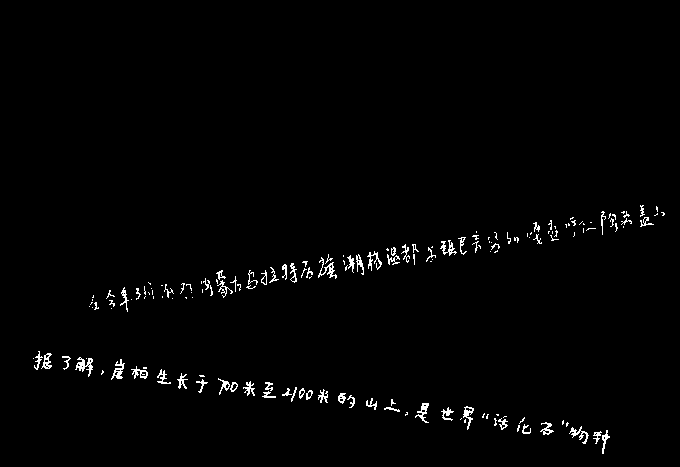 在今年3月内蒙古乌拉特后旗潮格温都尔镇巴音努如嘎查呼仁陶勒盖山
据了解，崖柏生长于700米至2100米的山上，是世界“活化石”物种